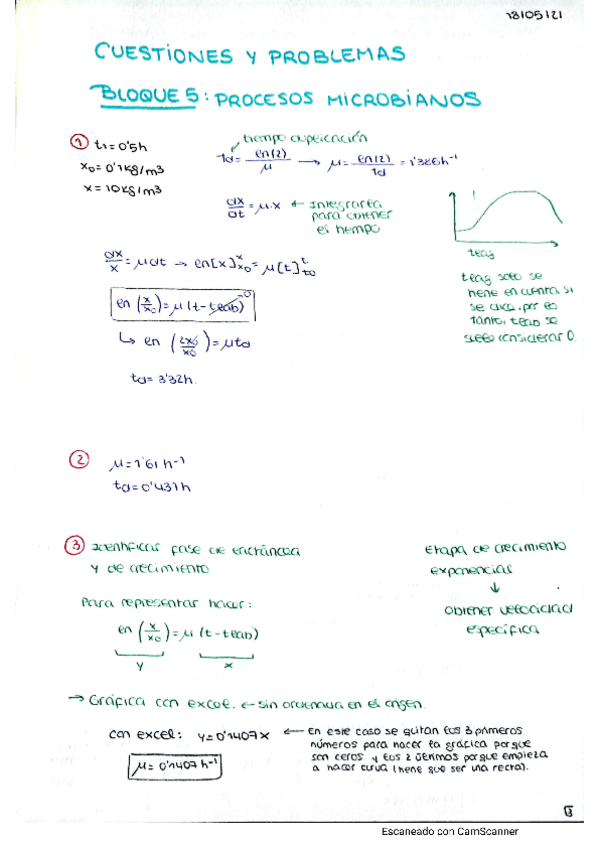 18/05/21
CUESTIONES Y PROBLEMAS
BLOQUE 5: PROCESOS MICROBIANOS
① t₁=0'5h
x₀=0'1kg/m3
x=10kg/m3
tiempo duplicación
td= ln(2)/μ → μ= ln(2)/td = 1'386h⁻¹
dx/dt = μ·x ← Integrarla
para obtener
el tiempo
tlag
tlag solo se
tiene en cuenta si
se dice, por lo
tanto, tlab se
suele considerar 0.
dx/x = μdt → ln[x]ˣₓ₀ = μ[t]ᵗₜ₀
ln (x/x₀) = μ(t-tlab) 0
↳ ln (2x₀/x₀) = μtd
td= 3'32h.
② μ=1'61 h⁻¹
td=0'431h
③ Identificar fase de
y de crecimiento
Etapa de crecimiento
exponencial
↓
obtener velocidad
específica
Para representar hacer:
ln (x/x₀) = μ (t-tlab)
y x
→ Gráfica con excel. ← sin ordenada en el origen.
con excel: y=0'1407x ← En este caso se quitan los 3 primeros
números para hacer la gráfica porque
son ceros y los 2 últimos porque empieza
a hacer curva (tiene que ser una recta).
μ= 0'1407 h⁻¹
Escaneado con CamScanner